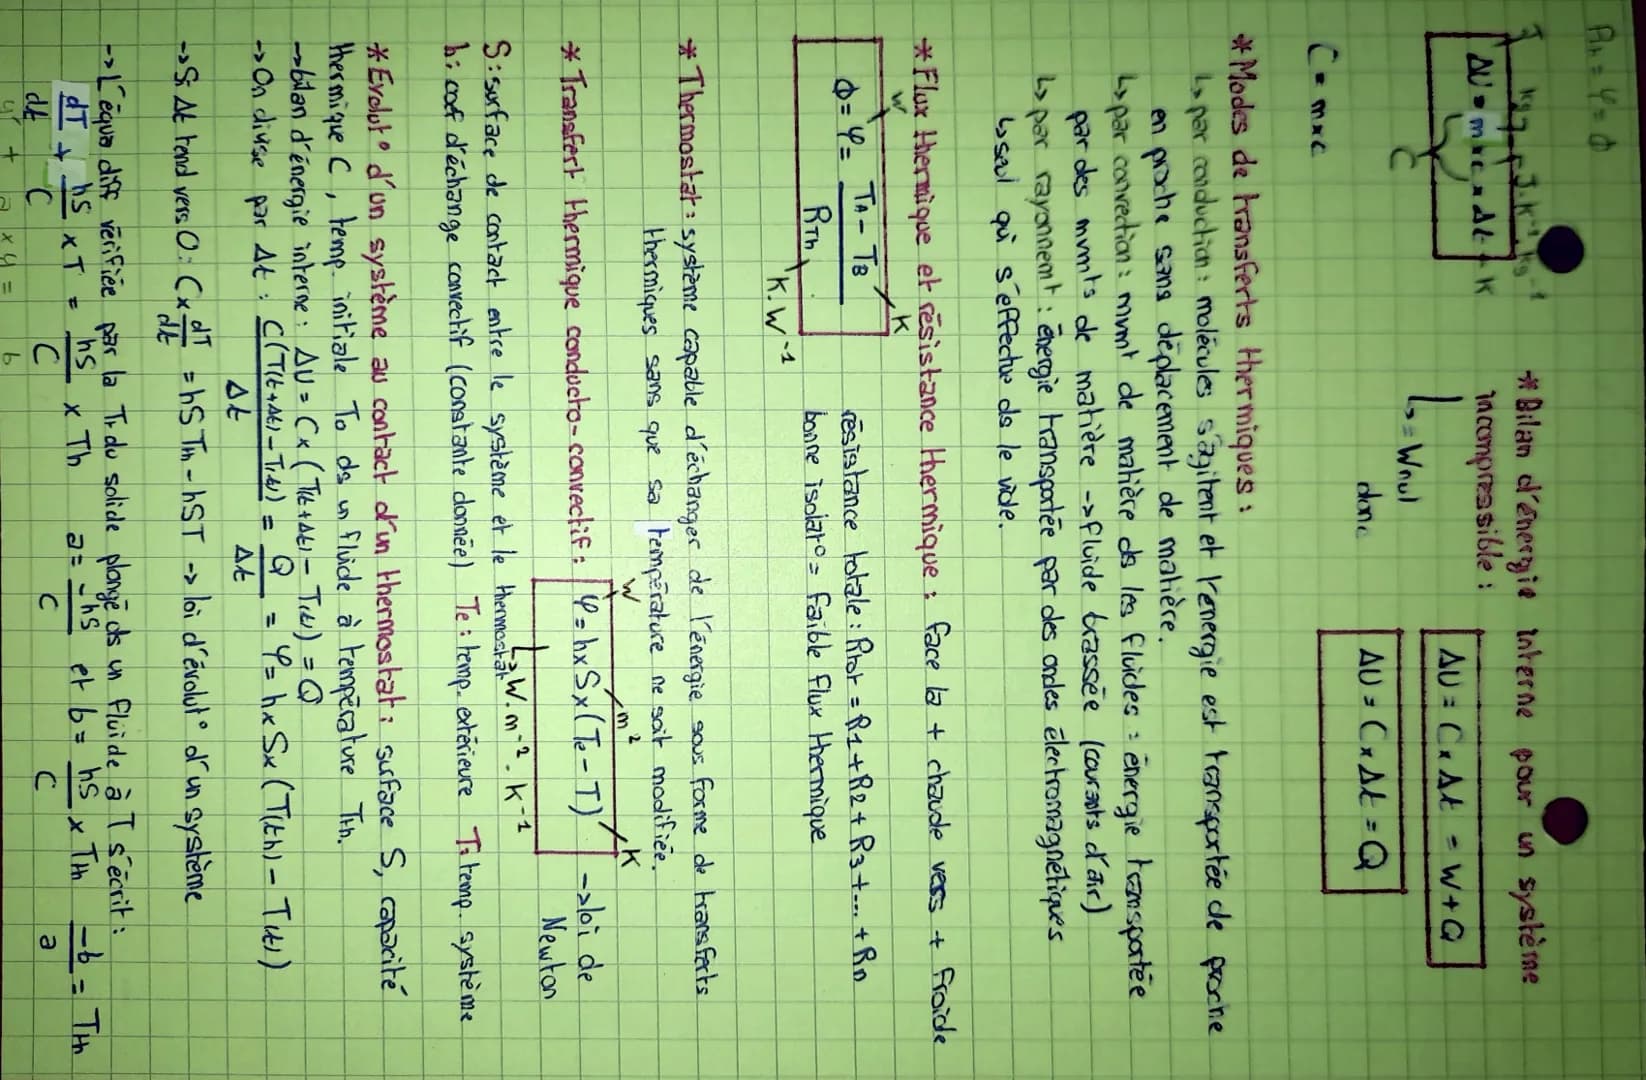 * Bilan d'énergie interne pour un système
incompressible :
ΔU = m x c x Δt
J
kg
J.K⁻¹.kg⁻¹
K
C
ΔU = C x Δt = W + Q
↳ = Wnul
donc
ΔU = C x Δt = Q
C = m x c
* Modes de transferts thermiques :
↳ par conduction : molécules s'agitent et l'énergie est transportée de proche
en proche sans déplacement de matière.
↳ par convection : mvmt de matière ds les fluides : énergie transportée
par des mvmts de matière -> fluide brassée (courants d'air)
↳ par rayonnement : énergie transportée par des ondes électromagnétiques
↳ seul qui s'effectue ds le vide.
* Flux thermique et résistance thermique : face la + chaude vers + froide
W
K
ϕ = φ = TA - TB / RTh
K.W⁻¹
résistance totale : Rtot = R1 + R2 + R3 + ... + Rn
bonne isolat° = faible flux thermique
* Thermostat : système capable d'échanger de l'énergie sous forme de transferts
thermiques sans que sa température ne soit modifiée.
* Transfert thermique conducto-convectif : φ = h x S x (Te - T) -> loi de
Newton
W
m²
K
↳ W.m⁻².K⁻¹
S : surface de contact entre le système et le thermostat
h : coef d'échange convectif (constante donnée) Te : temp. extérieure T : temp. système
* Evolut° d'un système au contact d'un thermostat : surface S, capacité
thermique C, temp. initiale T0 ds un fluide à température Th.
-> bilan d'énergie interne : ΔU = C x (T(t+Δt) - T(t)) = Q
-> On divise par Δt : C(T(t+Δt) - T(t)) / Δt = Q / Δt = φ = h x S x (T(th) - T(t))
-> Si Δt tend vers 0 : C x dT/dt = hSTh - hST -> loi d'évolut° d'un système
-> L'équa diff vérifiée par la T. du solide plongé ds un fluide à T s'écrit :
dT/dt + hS/C x T = hS/C x Th a = -hS/C et b = hS/C x Th -b/a = Th
y' + a x y = b